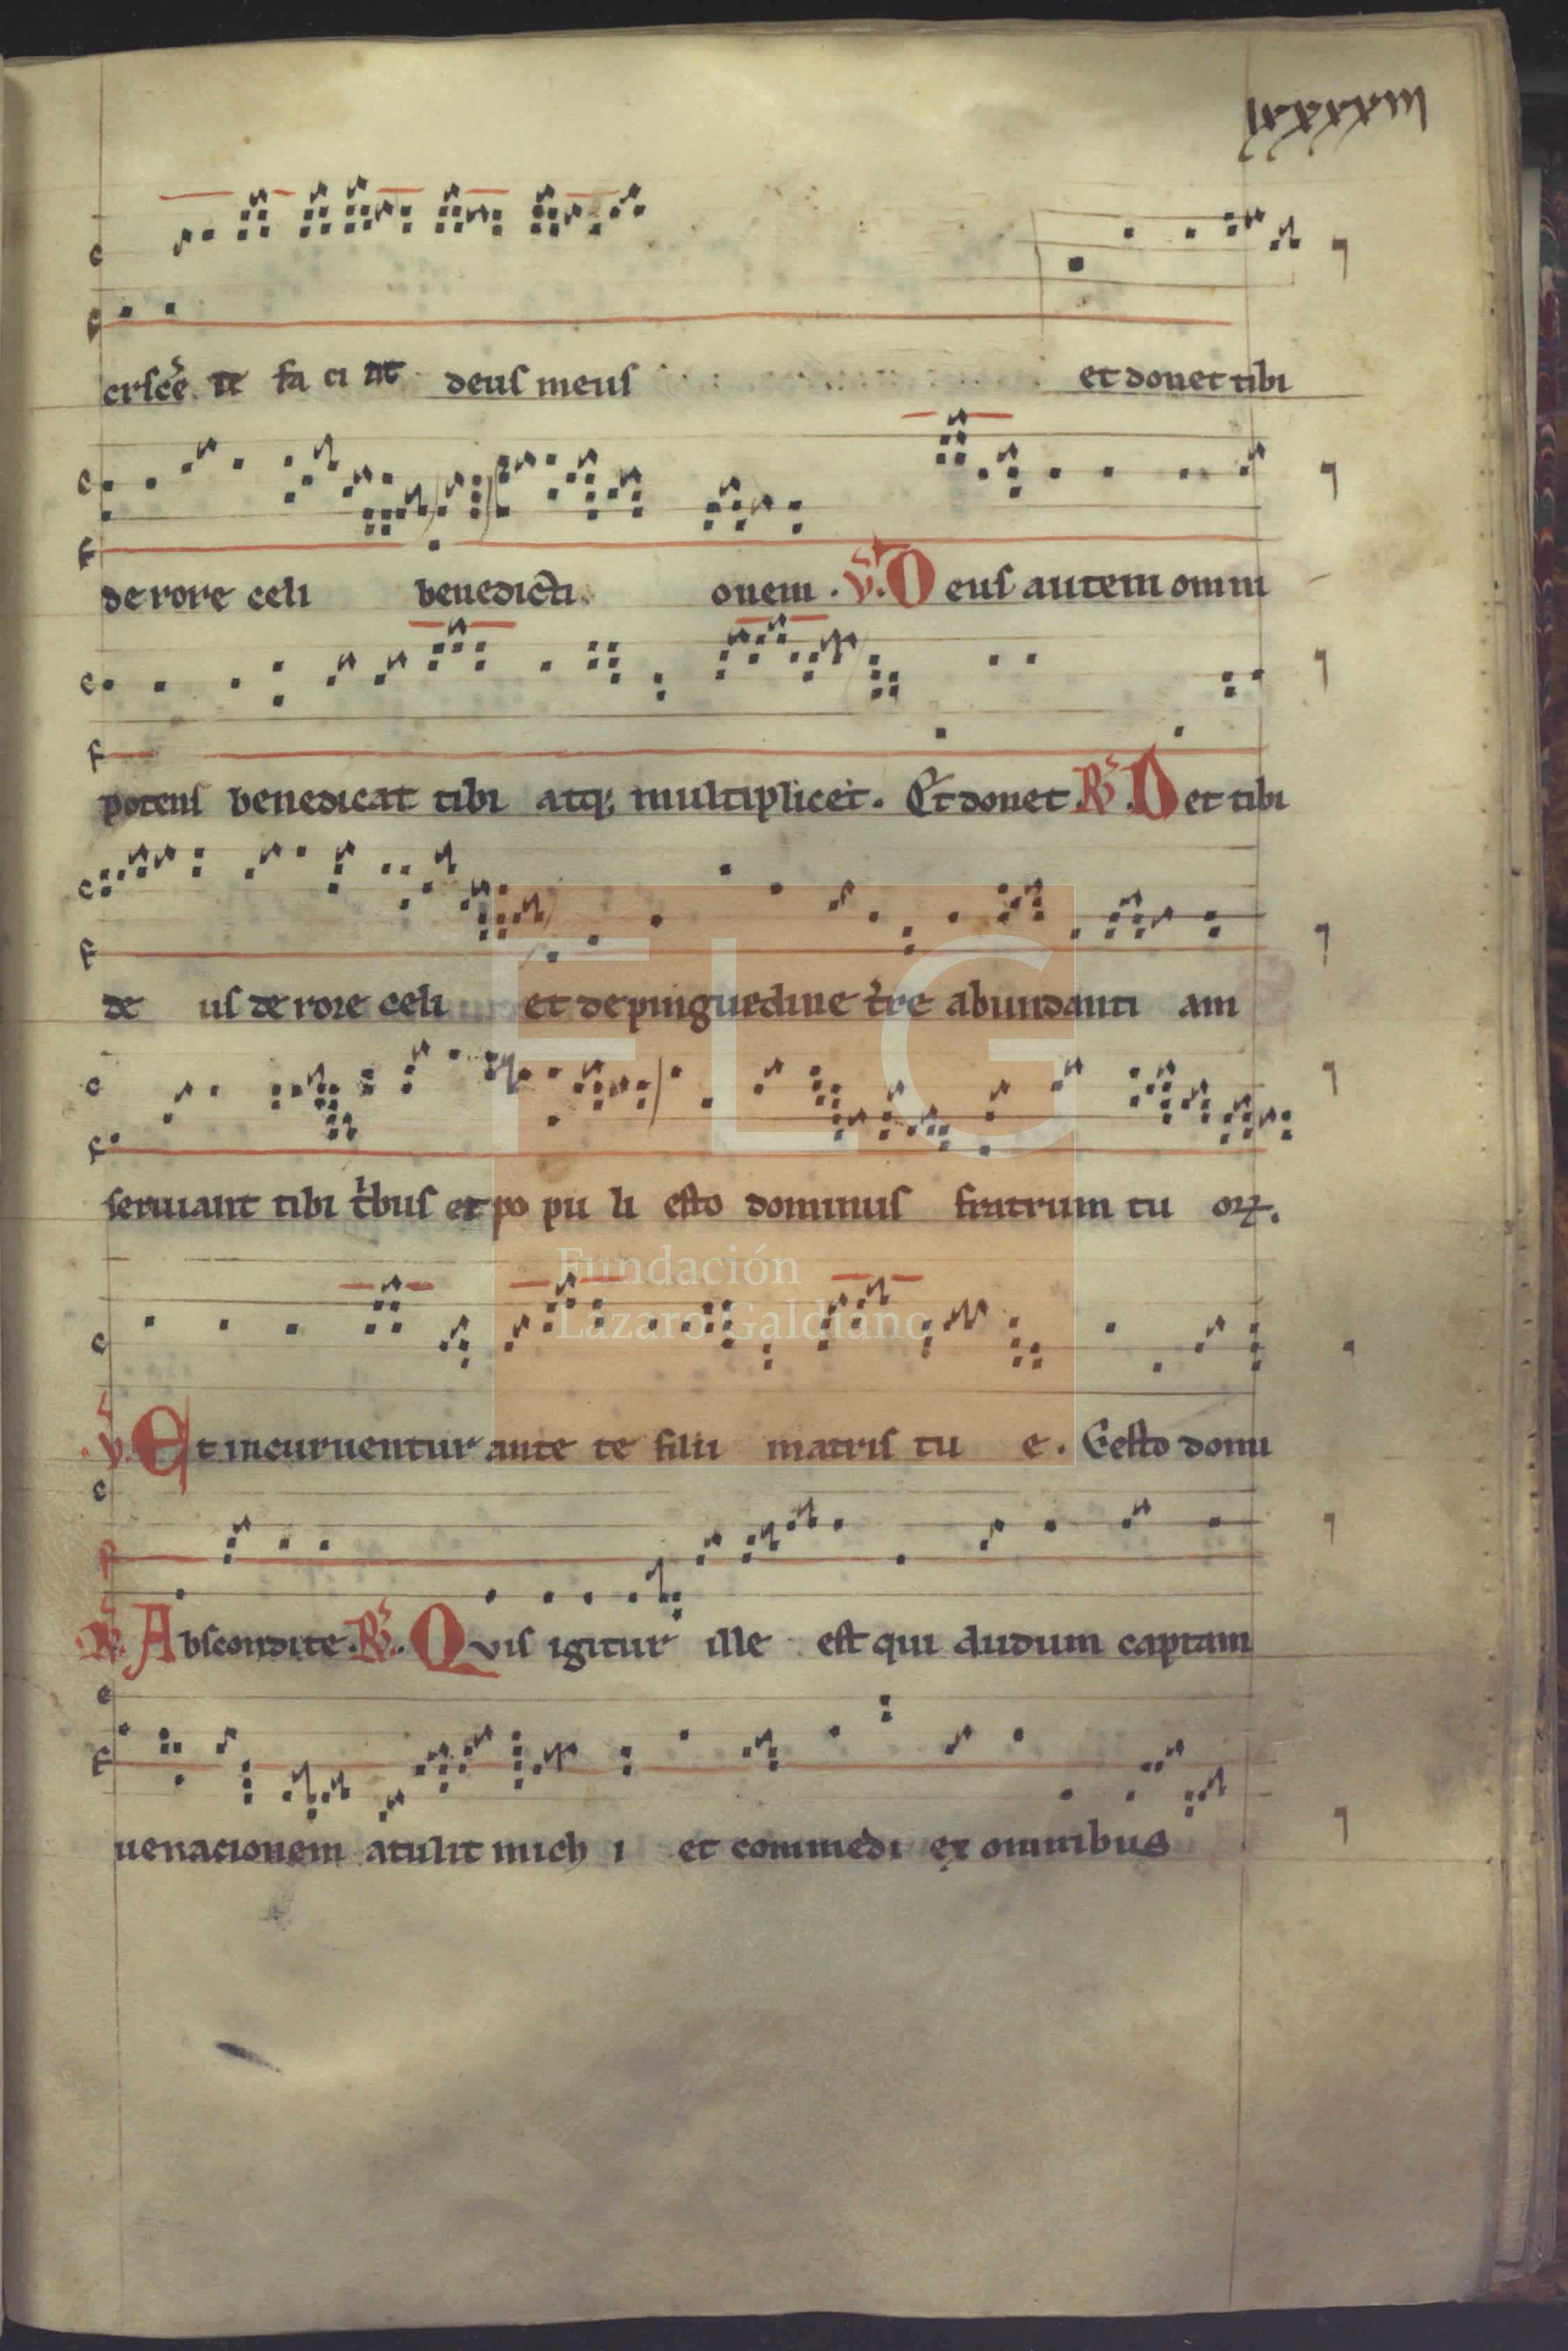 lxxxxviii
crescˀe te fa ci at deus meus et donet tibi
de rore celi benedicti onem . V. Deus autem omni
potens benedicat tibi atq; multiplicet. Et donet R. Det tibi
de us de rore celi et depinguedine tˀre abundanti am
seruiant tibi tˀbus et po pu li esto dominus fratrum tu oꝝ.
Fundación
Lázaro Galdiano
FLG
V. Et incuruentur ante te filii matris tu e. Eesto domi
R. Abscondite. R. Qvis igitur ille est qui dudum captam
uenacionem atulit mich i et commedi ex omnibus